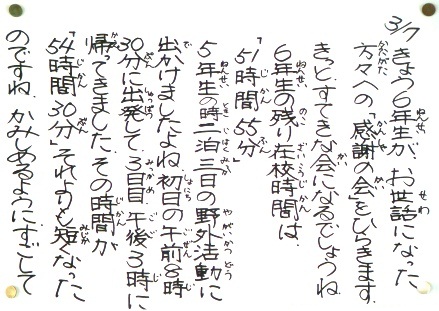 3/7
きょう6年生が、お世話になった
方々への「感謝の会」をひらきます。
きっと、すてきな会になるでしょうね。
6年生の残り在校時間は、
「51時間55分」
5年生の時二泊三日の野外活動に
出かけましたよね。初日の午前8時
30分に出発して、3日目、午後3時に
帰ってきました。その時間が
「54時間30分」それよりも短くなった
のですね。かみしめるようにすごして